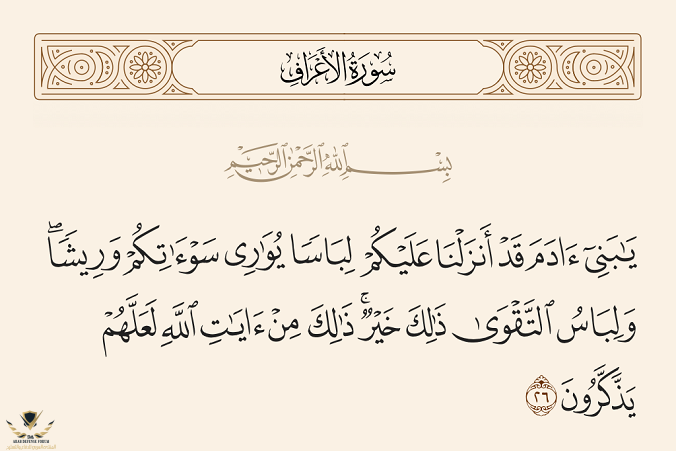 سُورَةُ الأَعْرَافِ
بِسْمِ ٱللَّهِ ٱلرَّحْمَٰنِ ٱلرَّحِيمِ
يَٰبَنِىٓ ءَادَمَ قَدْ أَنزَلْنَا عَلَيْكُمْ لِبَاسًا يُوَٰرِى سَوْءَٰتِكُمْ وَرِيشًاۖ
وَلِبَاسُ ٱلتَّقْوَىٰ ذَٰلِكَ خَيْرٌۚ ذَٰلِكَ مِنْ ءَايَٰتِ ٱللَّهِ لَعَلَّهُمْ
يَذَّكَّرُونَ ٢٦
ARAB DEFENSE FORUM